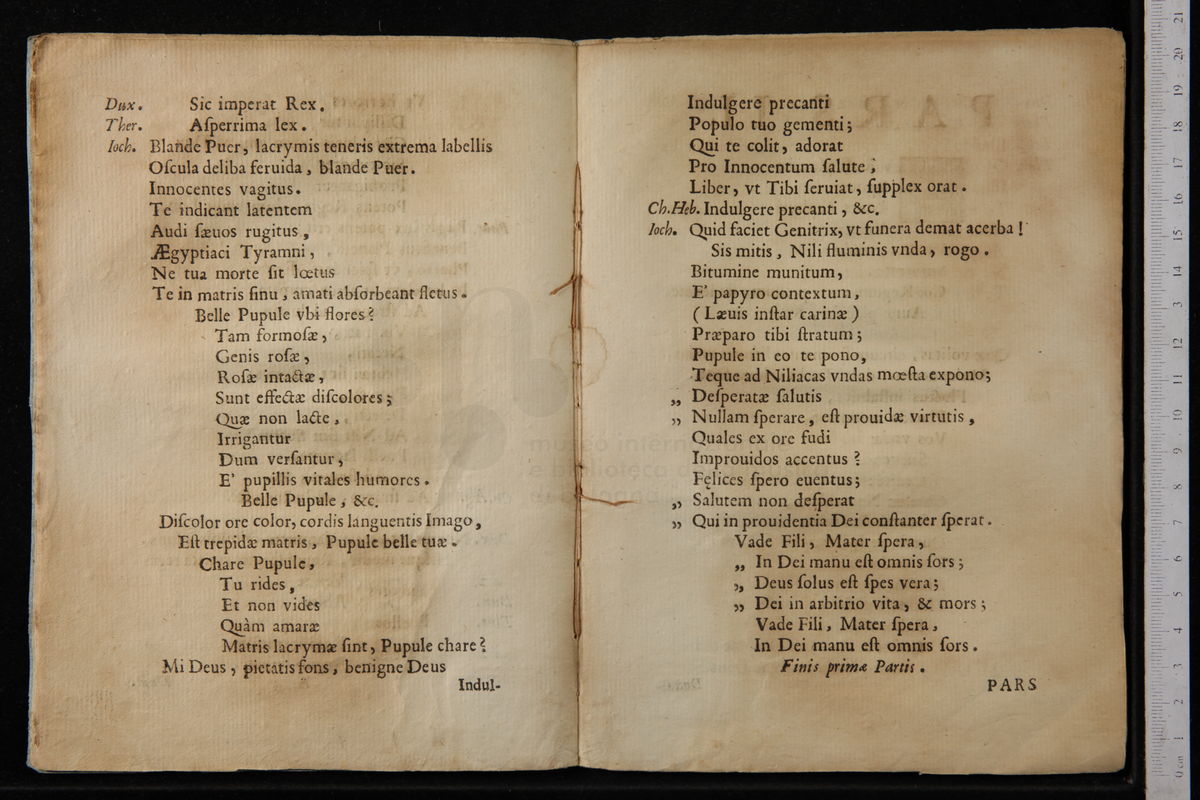 Dux. Sic imperat Rex.
Ther. Aſperrima lex.
Ioch. Blande Puer, lacrymis teneris extrema labellis
Oſcula deliba feruida, blande Puer.
Innocentes vagitus.
Te indicant latentem
Audi ſæuos rugitus,
Ægyptiaci Tyramni,
Ne tua morte ſit lœtus
Te in matris ſinu, amati abſorbeant fletus.
Belle Pupule vbi flores?
Tam formoſæ,
Genis roſæ,
Roſæ intactæ,
Sunt effectæ diſcolores;
Quæ non lacte,
Irrigantur
Dum verſantur,
E' pupillis vitales humores.
Belle Pupule, &c.
Diſcolor ore color, cordis languentis Imago,
Eſt trepidæ matris, Pupule belle tuæ.
Chare Pupule,
Tu rides,
Et non vides
Quàm amaræ
Matris lacrymæ ſint, Pupule chare?
Mi Deus, pietatis fons, benigne Deus
Indul-
Indulgere precanti
Populo tuo gementi;
Qui te colit, adorat
Pro Innocentum ſalute;
Liber, vt Tibi ſeruiat, ſupplex orat.
Ch.Heb. Indulgere precanti, &c.
Ioch. Quid faciet Genitrix, vt funera demat acerba!
Sis mitis, Nili fluminis vnda, rogo.
Bitumine munitum,
E' papyro contextum,
(Læuis inſtar carinæ)
Præparo tibi ſtratum;
Pupule in eo te pono,
Teque ad Niliacas vndas mœſta expono;
„ Deſperatæ ſalutis
„ Nullam ſperare, eſt prouidæ virtutis,
Quales ex ore fudi
Improuidos accentus?
Fęlices ſpero euentus;
„ Salutem non deſperat
„ Qui in prouidentia Dei conſtanter ſperat.
Vade Fili, Mater ſpera,
„ In Dei manu eſt omnis ſors;
„ Deus ſolus eſt ſpes vera;
„ Dei in arbitrio vita, & mors;
Vade Fili, Mater ſpera,
In Dei manu eſt omnis ſors.
Finis primæ Partis.
PARS